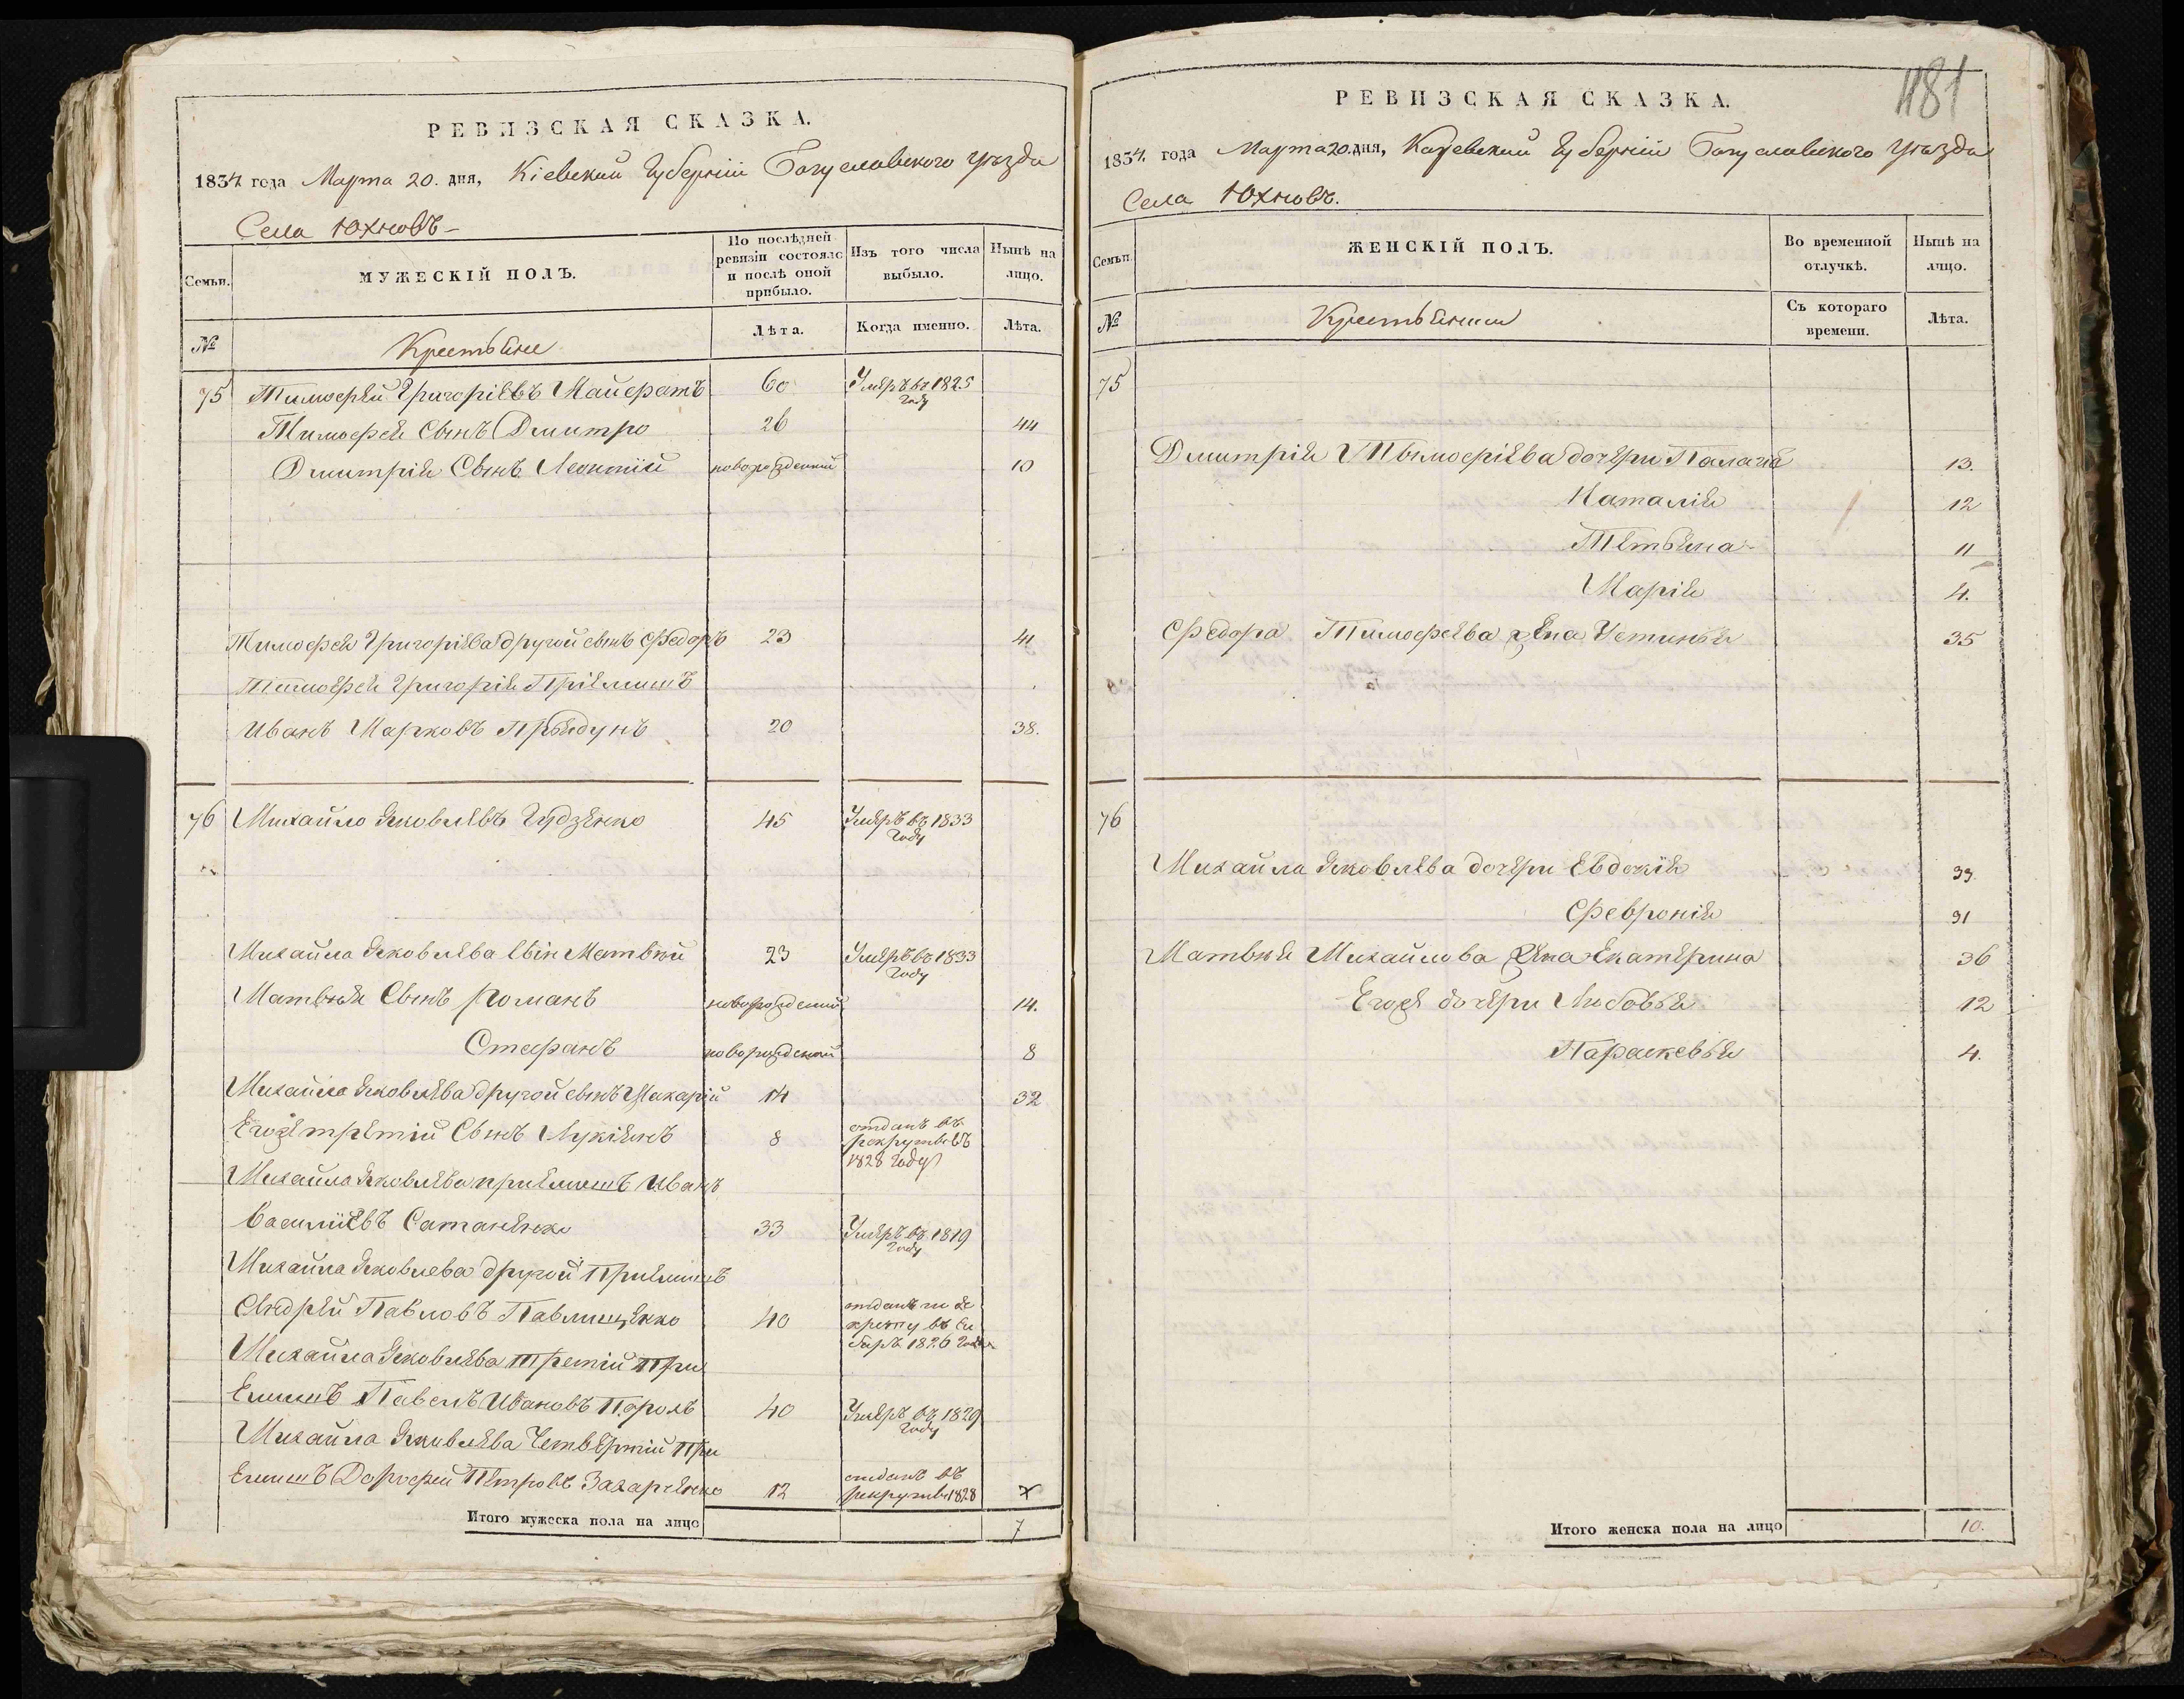 РЕВИЗСКАЯ СКАЗКА.
1834 года Марта 20. дня, Кіевскій Губерніи Богуславского уѣзда
Села Юхновъ-
Семьи.
МУЖЕСКІЙ ПОЛЪ.
По послѣдней ревизіи состояло и послѣ оной прибыло.
Изъ того числа выбыло.
Нынѣ на лицо.
№
Крестьяне
Лѣта.
Когда именно.
Лѣта.
75 Тимофей Григоріевъ 60 Умеръ въ 1825 году
Тимофея Сынъ Дмитро 26 44
Дмитрія Сынъ Леонтій новорожденній 10
Тимофея Григоріева другой сынъ Федоръ 23 41
Тимофея Григорія Пріемишъ
Иванъ Марковъ 20 38.
76 Михайло Яковлевъ Гудзенко 45 Умеръ въ 1833 году
Михайла Яковлева Сын Матвѣй 23 Умеръ въ 1833 году
Матвѣя Сынъ Романъ новорожденній 14.
Стефанъ новорожденній 8
Михайла Яковлева другой сынъ Макарій 14 32
Егоже третій Сынъ Лукіянъ 8 отданъ въ рекруты въ 1828 году
Михайла Яковлева пріемишъ Иванъ
Василіевъ Сатаненко 33 Умеръ въ 1819 году
Михайла Яковлева другой Пріемишъ
Андрей Павловъ Павлищенко 40 1826 года
Михайла Яковлева Третій При
емишъ Павелъ Ивановъ 40 Умеръ въ 1829 году
Михайла Яковлева Четвертій При
емишъ Дорофей Петровъ Захарченко 12 отданъ въ рекруты 1828 7
Итого мужеска пола на лицо 7
481
РЕВИЗСКАЯ СКАЗКА.
1834. года Марта 20. дня, Губерніи Богуславского уѣзда
Села Юхновъ.
Семьи.
ЖЕНСКІЙ ПОЛЪ.
Во временной отлучкѣ.
Нынѣ на лицо.
№
Крестьянки
Съ котораго времени.
Лѣта.
75
Дмитрія Тимофіева дочери Палагія 13.
Наталія 12
Тетьяна 11
Марія 4.
Федора Тимофеева жена Устинья 35
76
Михайла Яковлева дочери Евдокія 33.
Февронія 31
Матвѣя Михайлова жена Екатерина 36
Егоже дочери Любовья 12
Параскевья 4.
Итого женска пола на лицо 10.